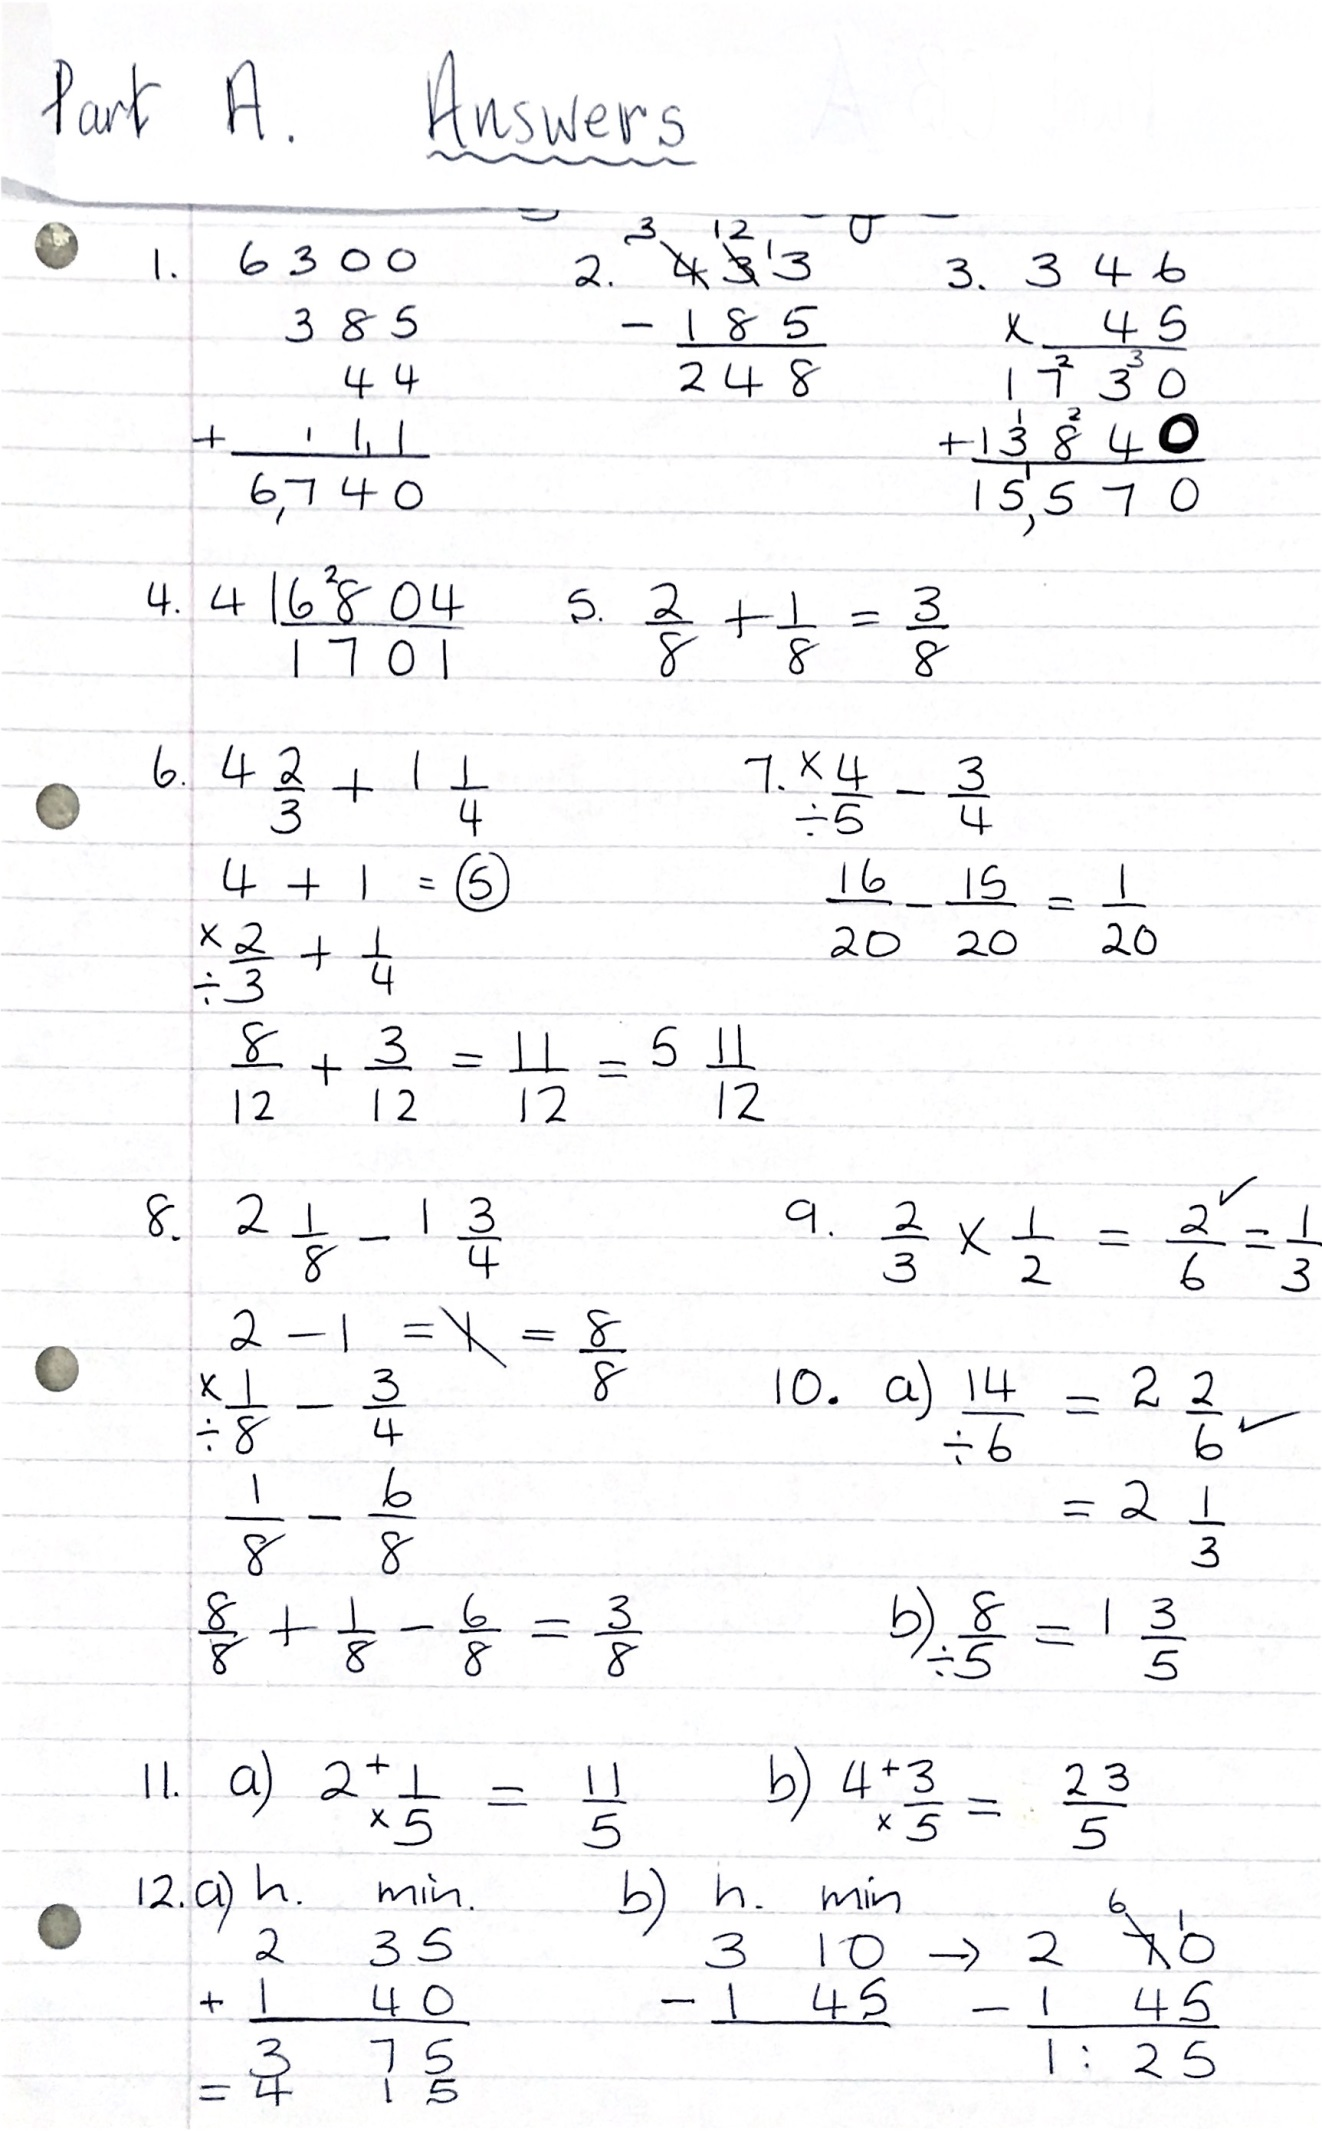 Part A. Answers
1. 6300
385
44
+ 11
6,740
2. 433
- 185
248
3. 346
x 45
1730
+13840
15,570
4. 4 | 6804
1701
5. 2/8 + 1/8 = 3/8
6. 4 2/3 + 1 1/4
4 + 1 = 5
x 2/3 + 1/4
÷
8/12 + 3/12 = 11/12 = 5 11/12
7. x 4/5 - 3/4
÷
16/20 - 15/20 = 1/20
8. 2 1/8 - 1 3/4
2 - 1 = 1 = 8/8
x 1/8 - 3/4
÷
1/8 - 6/8
8/8 + 1/8 - 6/8 = 3/8
9. 2/3 x 1/2 = 2/6 ✓ = 1/3
10. a) 14/÷6 = 2 2/6 ✓
= 2 1/3
b) 8/÷5 = 1 3/5
11. a) 2 + 1/x5 = 11/5
b) 4 + 3/x5 = 23/5
12. a) h. min.
2 35
+ 1 40
3 75
= 4 15
b) h. min
3 10 → 2 70
- 1 45 - 1 45
1:25